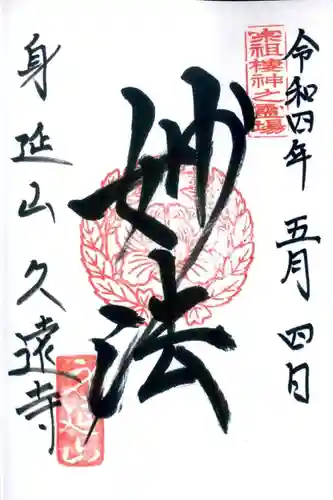 宗祖棲神之霊場
令和四年 五月 四日
妙法
身延山久遠寺